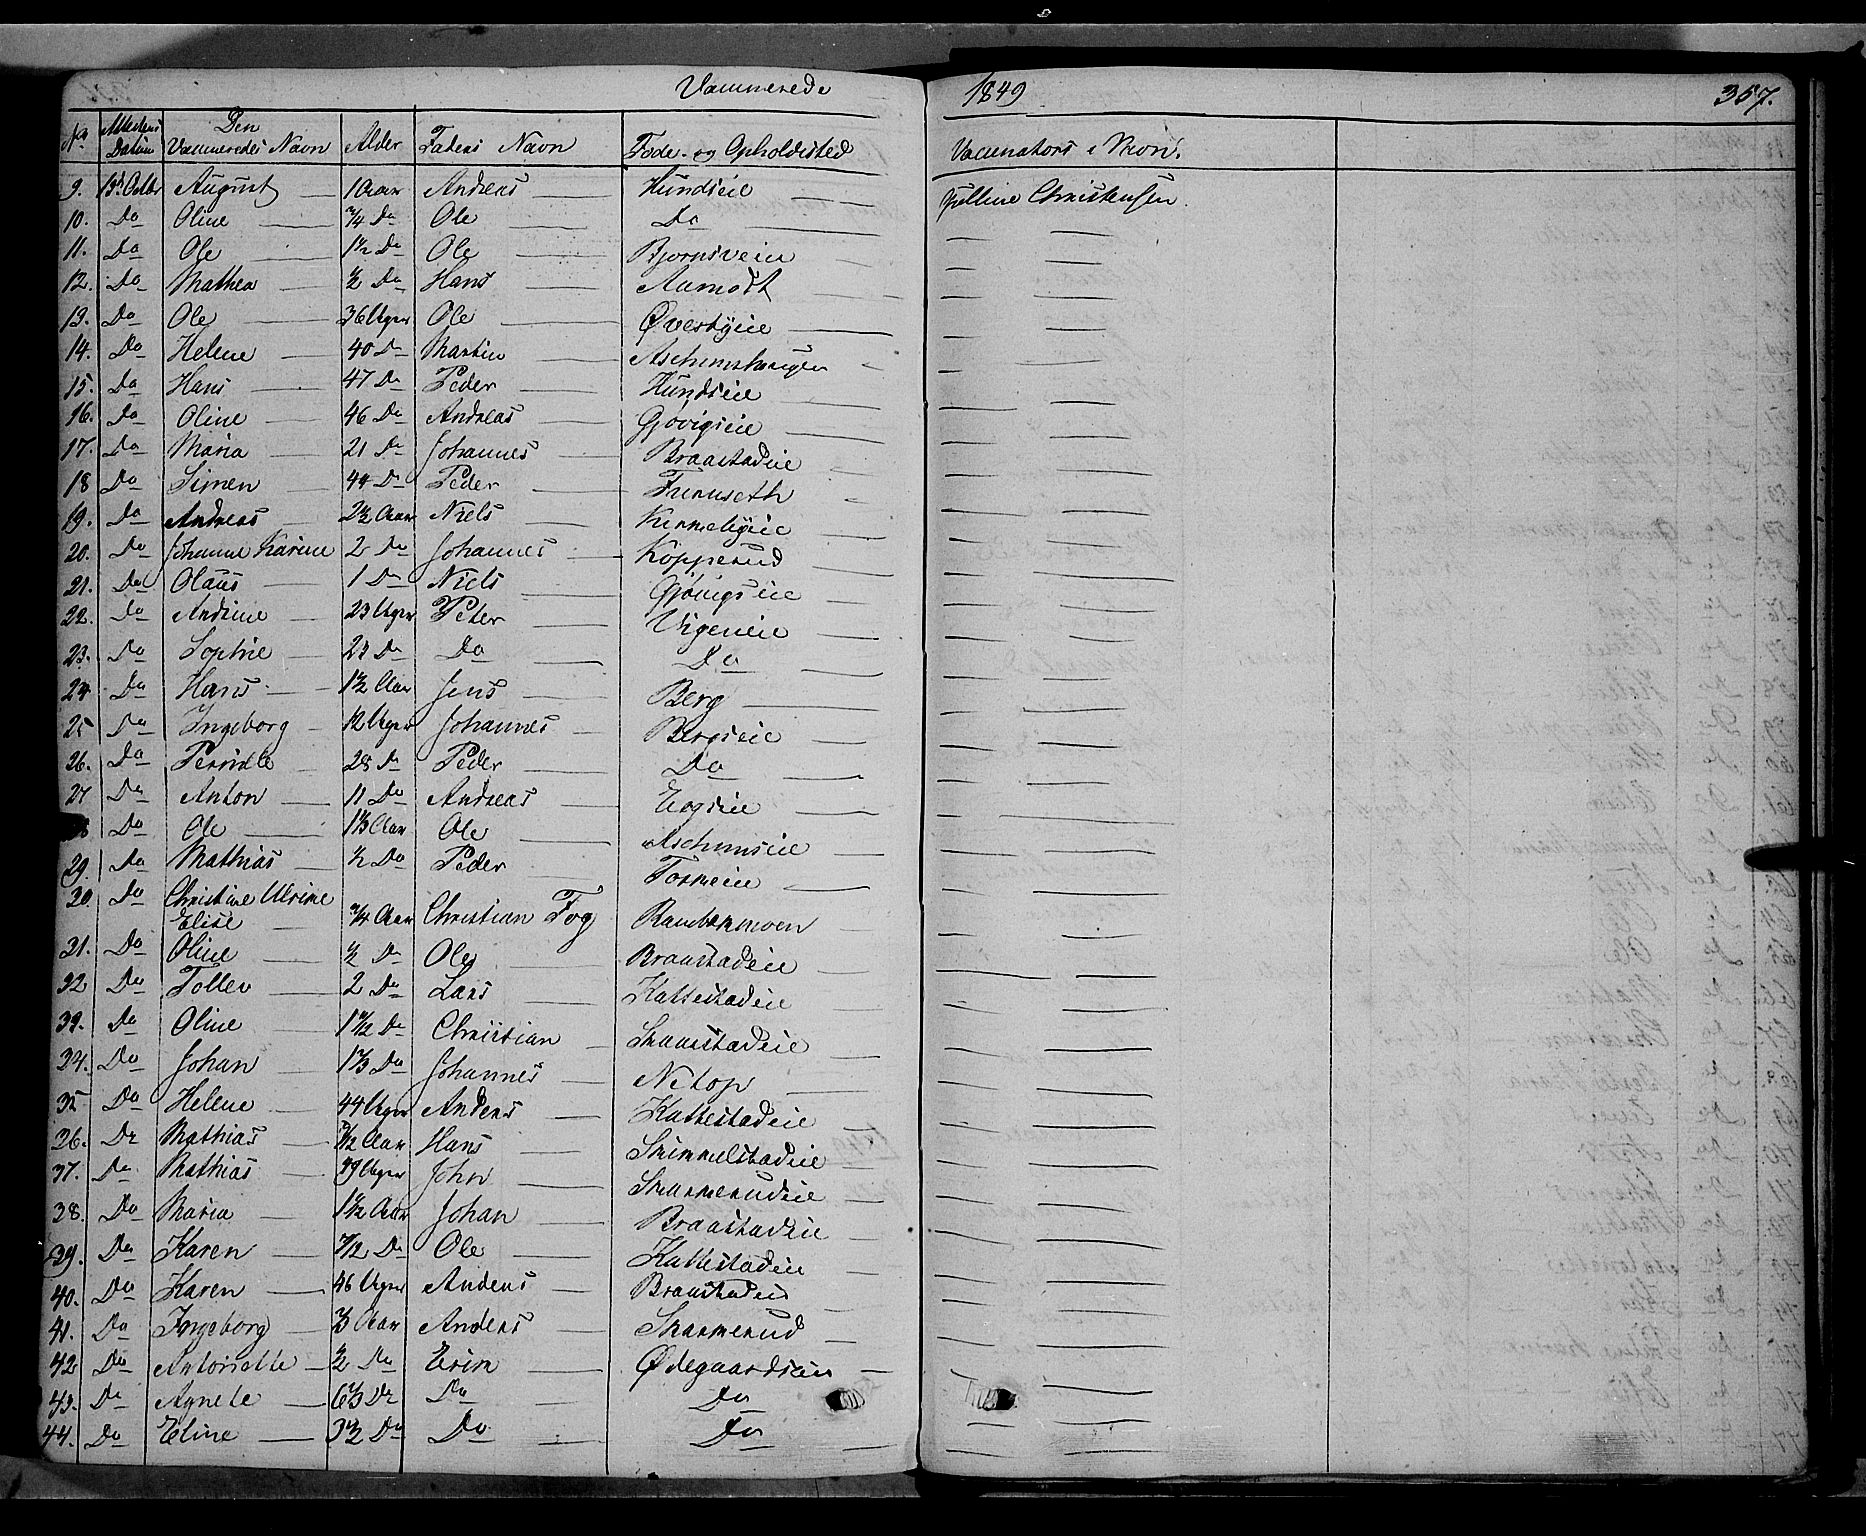 Vaccinerede 1849 357.
No Attestens Datum Den Vaccineredes Navn Alder Faders Navn Føde- og Opholdssted Vaccinators Navn.
9. 13de Octbr August 1 Aar Andreas Hundseie Julline Christensen
10. Do Oline 3/4 Do Ole Do
11. Do Ole 1 1/2 Do Ole Bjørnsveien
12. Do Mathea 1/2 Do Hans Aamodt
13. Do Ole 36 Uger Ole Øvestyeie
14. Do Helene 40 Do Martin Aschimshaugen
15. Do Hans 47 Do Peder Hundseie
16. Do Oline 46 Do Andreas Gjøvigseie
17. Do Maria 21 Do Johannes Braastadeie
18 Do Simen 44 Do Peder Furuseth
19. Do Andreas 2 1/2 Aar Niels
20. Do Johanne Karine 2 Do Johannes Kopperud
21. Do Olaus 1 Do Niels Gjøvigseie
22. Do Andrine 23 Uger Peter Vigeneie
23. Do Sophie 23 Do Do Do
24 Do Hans 1 1/2 Aar Jens Berg
25 Do Ingeborg 12 Uger Johannes Bergseie
26. Do Pernille 28 Do Peder Do
27 Do Anton 11 Do Andreas Eegseie
Do Ole 1 1/3 Aar Ole Aschimseie
29. Do Mathias 1/2 Do Peder
30. Do Christine Ulrikke
Elise 3/4 Aar Christian Fog Rambekmoen
31. Do Oline 1/2 Do Ole Braastadeie
32 Do Tollev 2 Do Lars Kattestadeie
33. Do Oline 1 1/2 Do Christian Skaarstadeie
34. Do Johan 1 1/3 Do Johannes Netop
35 Do Helene 44 Uger Anders Kattestadeie
36. Do Mathias Aar Hans Skimmelstadeie
37. Do Mathias 39 Uger John Skarnerudeie
38. Do Maria 1 1/2 Aar Johan Braastadeie
39. Do Karen Do Ole Kattestadeie
40. Do Karen 46 Uger Anders Braastadeie
41. Do Ingeborg Aar Anders Skarnerud
42 Do Antonette 1/2 Do Erik Ødegaardseie
43. Do Agnete 6 1/3 Do Do Do
44. Do Eline 3 1/2 Do Do Do